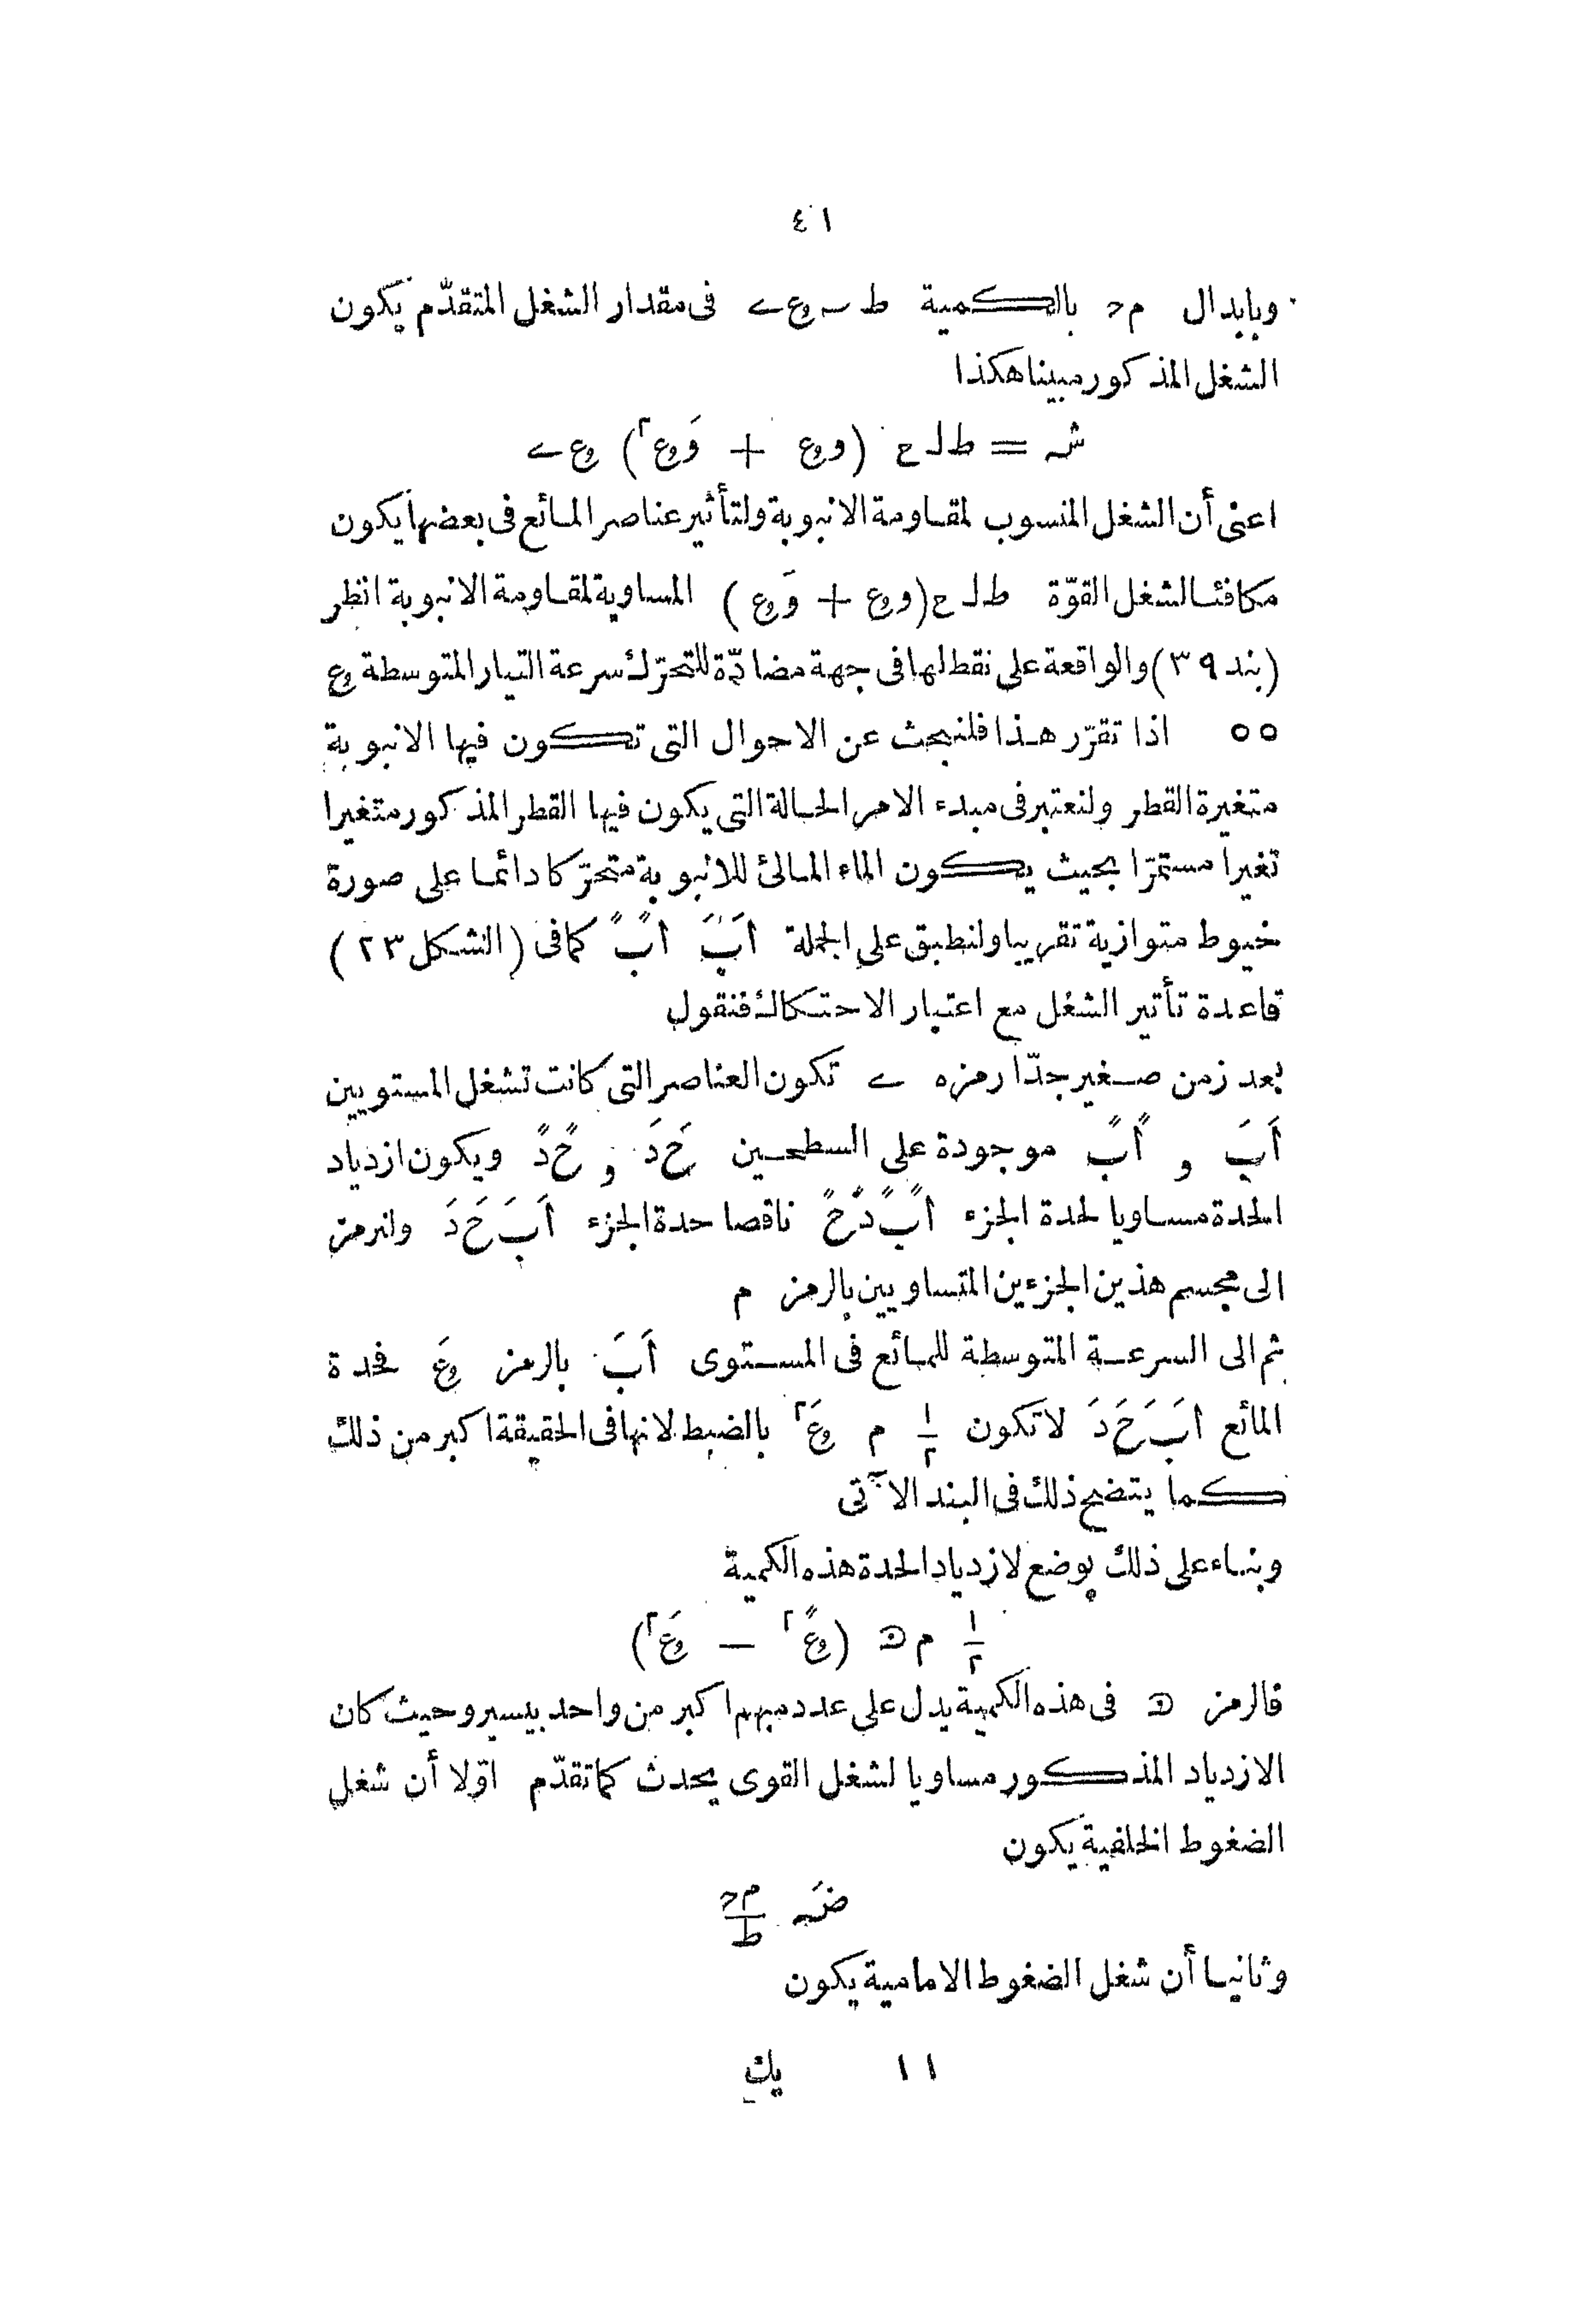 ٤١
وبابدال م ء بالكمية ط س ع ے فى مقدار الشغل المتقدّم يكون
الشغل المذكور مبينا هكذا
شه = ط ل ح (وع + وَع٢) ع ے
اعنى أن الشغل المنسوب لمقاومة الانبوبة ولتأثير عناصر المائع فى بعضها يكون
مكافئا لشغل القوّة ط ل ح (وع + وَع) المساوية لمقاومة الانبوبة انظر
(بند ٣٩) والواقعة على نقط لها فى جهة مضادّة للتحرّك سرعة التيار المتوسطة ع
٥٥ اذا تقرّر هذا فلنبحث عن الاحوال التى تكون فيها الانبوبة
متغيرة القطر ولنعتبر فى مبدء الامر الحالة التى يكون فيها القطر المذكور متغيرا
تغيرا مستمرّا بحيث يكون الماء المالئ للانبوبة متحرّكا دائما على صورة
خيوط متوازية تقريبا ولنطبق على الجملة اَبَ اً بً كما فى (الشكل ٢٣)
قاعدة تأتير الشغل مع اعتبار الاحتكاك فنقول
بعد زمن صغير جدّا رمزه ے تكون العناصر التى كانت تشغل المستويين
اَبَ و اًبً موجودة على السطحين حَ دَ و حً دً ويكون ازدياد
الحدة مساويا لحدة الجزء اً بً دً حً ناقصا حدة الجزء اَبَ حَ دَ ولنرمز
الى مجسم هذين الجزءين المتساويين بالرمز م
ثم الى السرعة المتوسطة للمائع فى المستوى اَبَ بالرمز عَ فحدة
المائع اَبَ حَ دَ لا تكون ١/٢ م عَ٢ بالضبط لانها فى الحقيقة اكبر من ذلك
كما يتضح ذلك فى البند الآتى
وبناء على ذلك يوضع لازدياد الحدة هذه الكمية
١/٢ م ⅅ (عً٢ — عَ٢)
فالرمز ⅅ فى هذه الكمية يدل على عدد مبهم اكبر من واحد بيسير وحيث كان
الازدياد المذكور مساويا لشغل القوى يحدث كما تقدّم اوّلا أن شغل
الضغوط الخلفية يكون
ضَه م ء/ط
وثانيا أن شغل الضغوط الامامية يكون
١١ يك